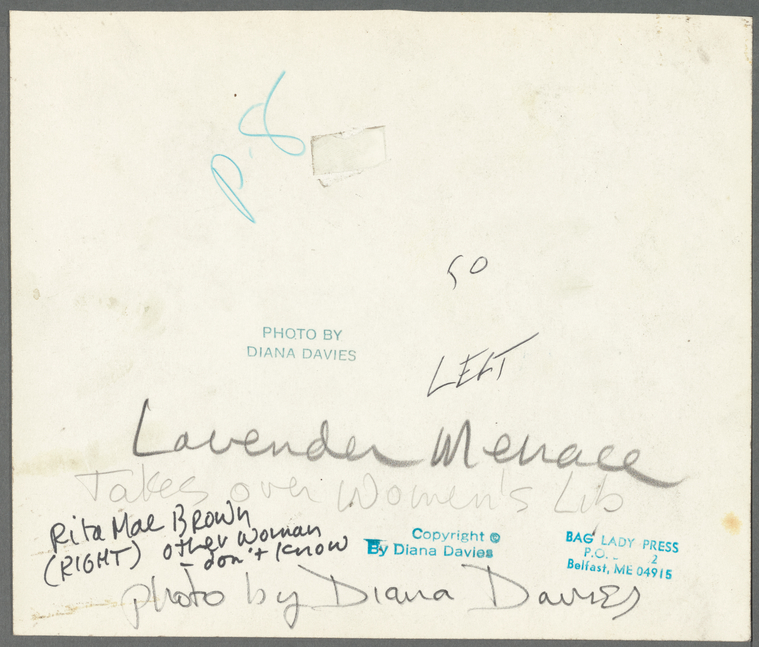 p. 8
50
PHOTO BY
DIANA DAVIES
LEFT
Lavender Menace
Takes over Women's Lib
Rita Mae Brown
(RIGHT) other woman
- don't know
Copyright ©
By Diana Davies
BAG LADY PRESS
P.O. 2
Belfast, ME 04915
photo by Diana Davies